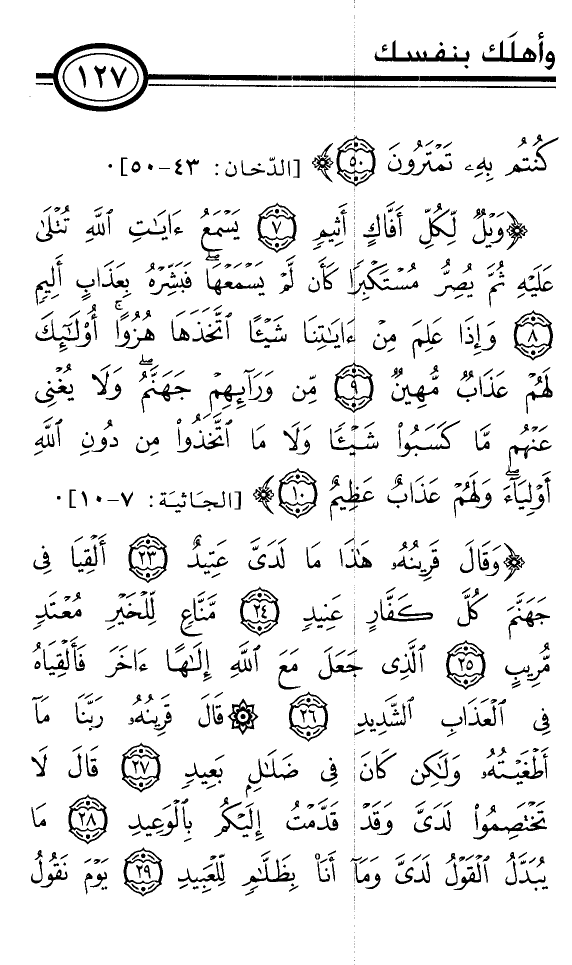 وأهلَك بنفسك
١٢٧
كُنتُم بِهِۦ تَمۡتَرُونَ ٥٠﴾ [الدّخان: ٤٣-٥٠].
﴿وَيۡلٞ لِّكُلِّ أَفَّاكٍ أَثِيمٖ ٧ يَسۡمَعُ ءَايَٰتِ ٱللَّهِ تُتۡلَىٰ
عَلَيۡهِ ثُمَّ يُصِرُّ مُسۡتَكۡبِرٗا كَأَن لَّمۡ يَسۡمَعۡهَاۖ فَبَشِّرۡهُ بِعَذَابٍ أَلِيمٖ
٨ وَإِذَا عَلِمَ مِنۡ ءَايَٰتِنَا شَيۡـًٔا ٱتَّخَذَهَا هُزُوًاۚ أُوْلَٰٓئِكَ
لَهُمۡ عَذَابٞ مُّهِينٞ ٩ مِّن وَرَآئِهِمۡ جَهَنَّمُۖ وَلَا يُغۡنِي
عَنۡهُم مَّا كَسَبُواْ شَيۡـٔٗا وَلَا مَا ٱتَّخَذُواْ مِن دُونِ ٱللَّهِ
أَوۡلِيَآءَۖ وَلَهُمۡ عَذَابٌ عَظِيمٌ ١٠﴾ [الجاثية: ٧-١٠].
﴿وَقَالَ قَرِينُهُۥ هَٰذَا مَا لَدَيَّ عَتِيدٌ ٢٣ أَلۡقِيَا فِي
جَهَنَّمَ كُلَّ كَفَّارٍ عَنِيدٖ ٢٤ مَّنَّاعٖ لِّلۡخَيۡرِ مُعۡتَدٖ
مُّرِيبٍ ٢٥ ٱلَّذِي جَعَلَ مَعَ ٱللَّهِ إِلَٰهًا ءَاخَرَ فَأَلۡقِيَاهُ
فِي ٱلۡعَذَابِ ٱلشَّدِيدِ ٢٦ ۞قَالَ قَرِينُهُۥ رَبَّنَا مَآ
أَطۡغَيۡتُهُۥ وَلَٰكِن كَانَ فِي ضَلَٰلِۭ بَعِيدٖ ٢٧ قَالَ لَا
تَخۡتَصِمُواْ لَدَيَّ وَقَدۡ قَدَّمۡتُ إِلَيۡكُم بِٱلۡوَعِيدِ ٢٨ مَا
يُبَدَّلُ ٱلۡقَوۡلُ لَدَيَّ وَمَآ أَنَا۠ بِظَلَّٰمٖ لِّلۡعَبِيدِ ٢٩ يَوۡمَ نَقُولُ